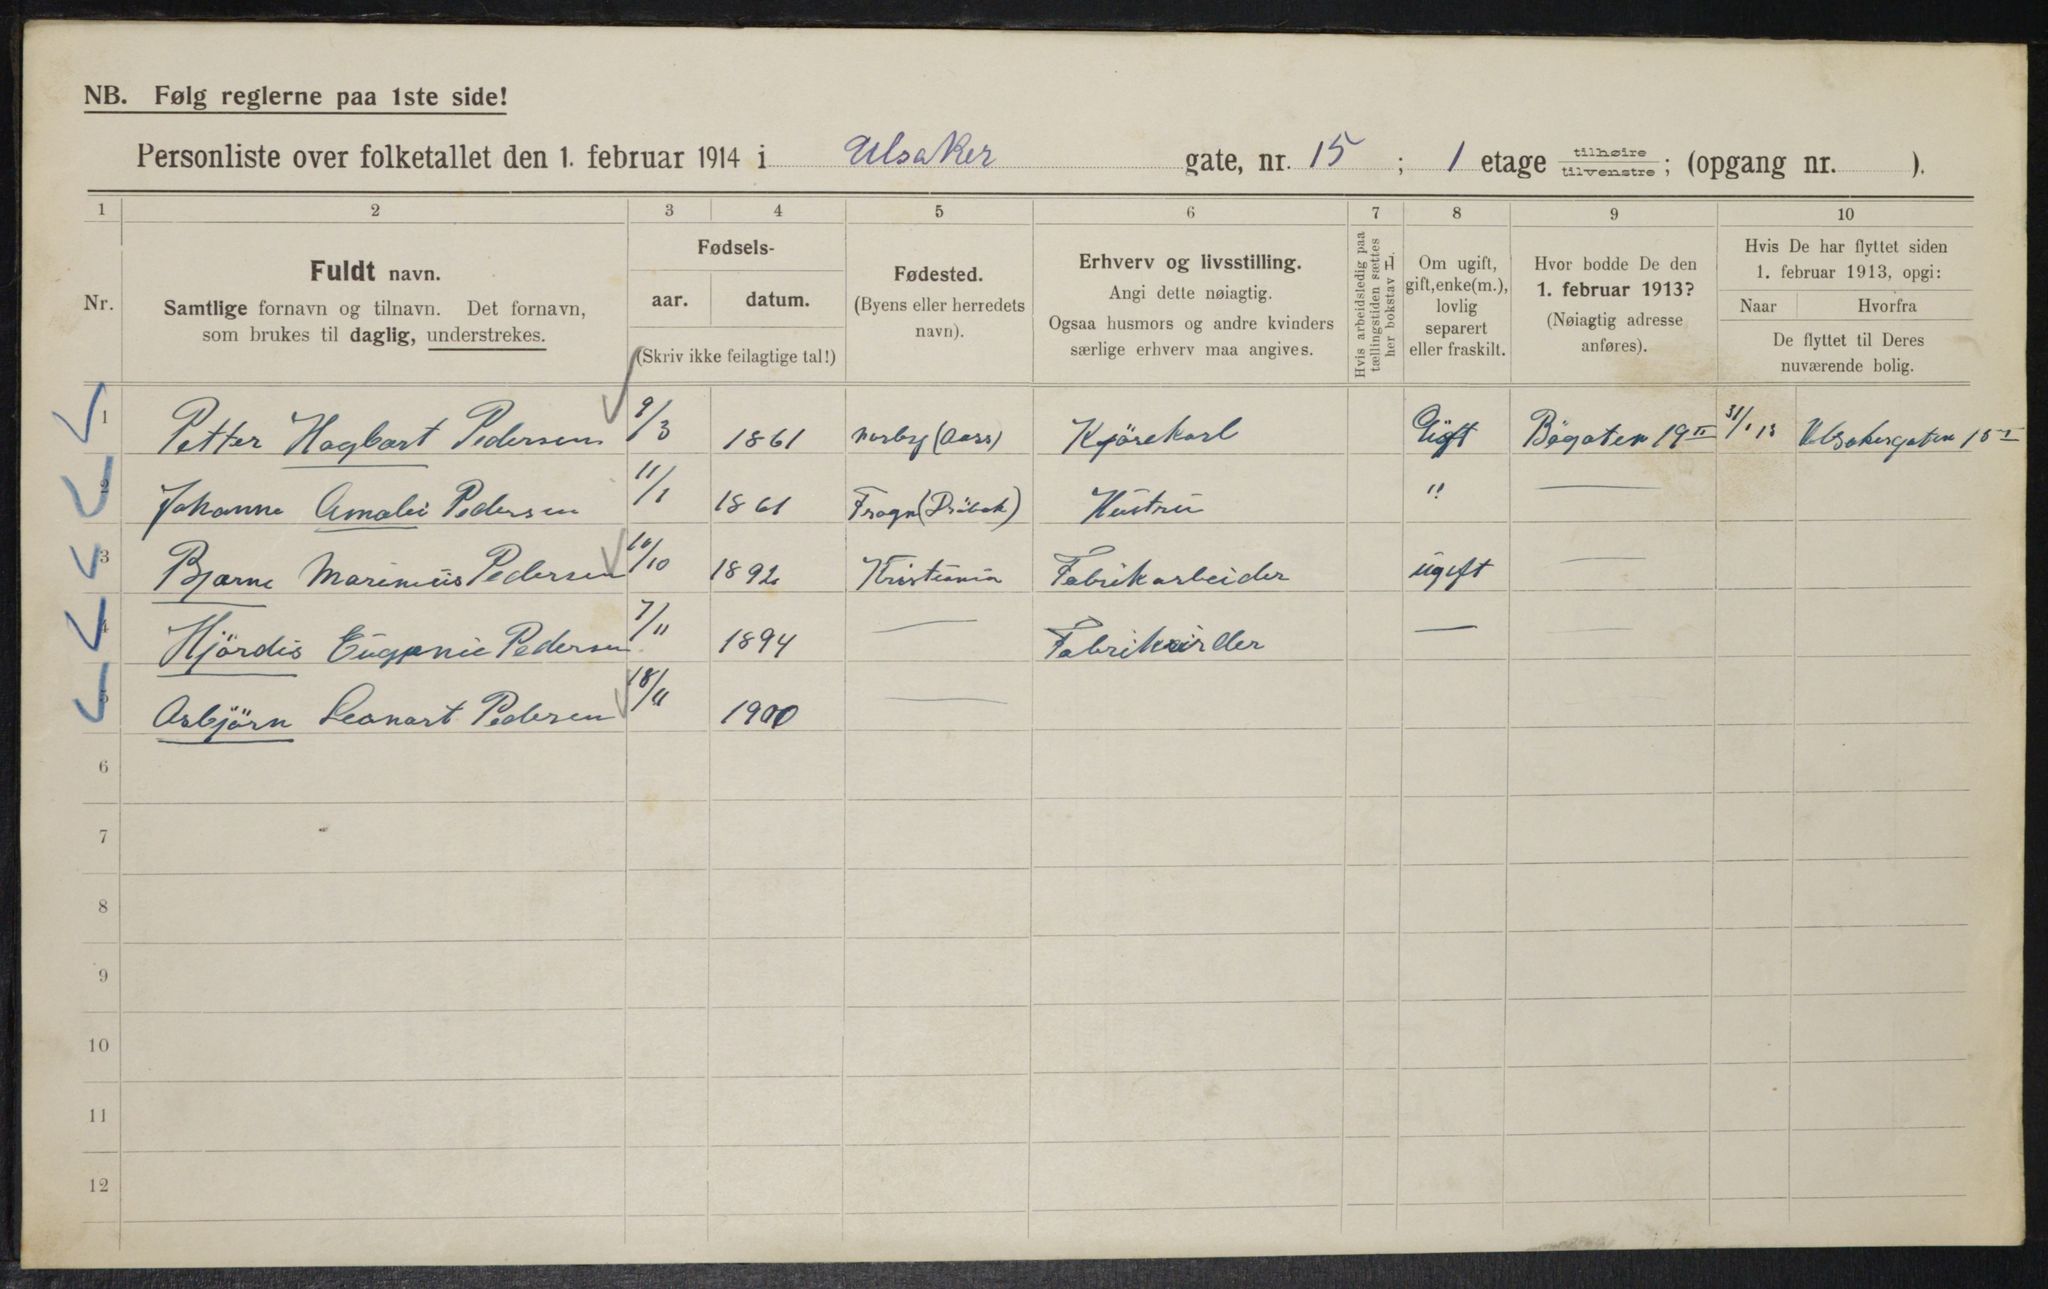 NB. Følg reglerne paa 1ste side!
Personliste over folketallet den 1. februar 1914 i Ulsaker gate, nr. 15 ; 1 etage tilhøire tilvenstre ; (opgang nr. ).
1 2 3 4 5 6 7 8 9 10
Nr.
Fuldt navn.
Samtlige fornavn og tilnavn. Det fornavn,
som brukes til daglig, understrekes.
Fødsels-
aar. datum.
(Skriv ikke feilagtige tal!)
Fødested.
(Byens eller herredets
navn).
Erhverv og livsstilling.
Angi dette nøiagtig.
Ogsaa husmors og andre kvinders
særlige erhverv maa angives.
Hvis arbeidsledig paa
tællingstiden sættes
her bokstav L.
Om ugift,
gift, enke(m.),
lovlig
separert
eller fraskilt.
Hvor bodde De den
1. februar 1913?
(Nøiagtig adresse
anføres).
Hvis De har flyttet siden
1. februar 1913, opgi:
Naar Hvorfra
De flyttet til Deres
nuværende bolig.
1 Petter Hagbart Pedersen 9/3 1861 (Aass) Kjörekarl Gift Bögaten 19 II 31/1 13 Ulsakergaten 15 I
2 Johanne Amalei Pedersen 11/1 1861 Frogn (Dröbak) Hustru " —
3 Bjarne Marinius Pedersen 10/10 1892 Kristiania Fabrikarbeider ugift —
4 Hjördis Eugenie Pedersen 7/11 1894 — — —
5 Asbjörn Leonart Pedersen 18/11 1900 —
6
7
8
9
10
11
12